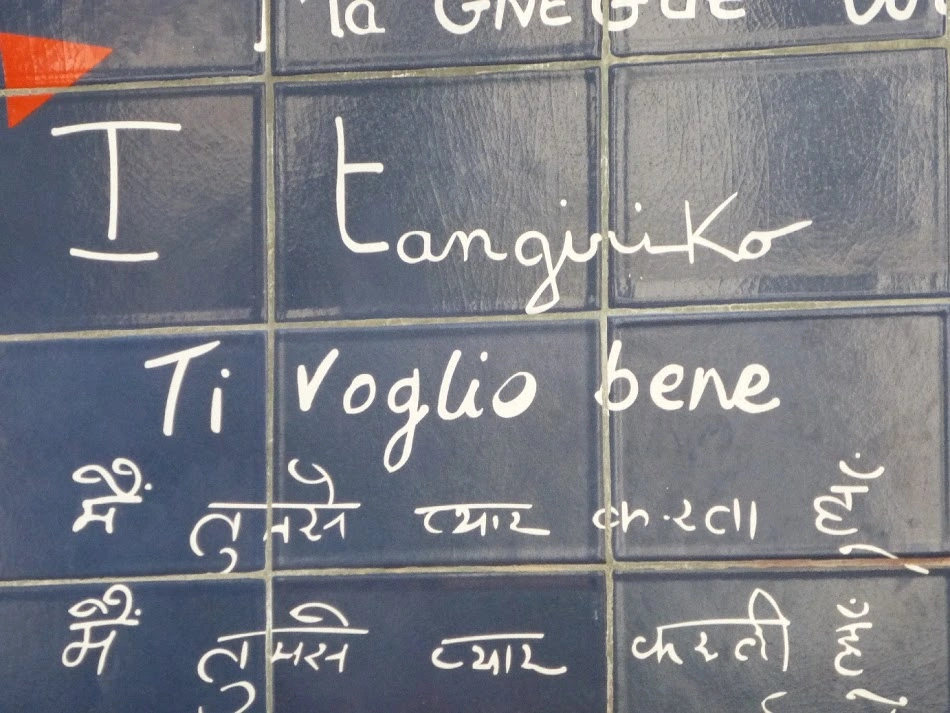 la GNEGUE
I tangiriko
Ti voglio bene
मैं तुमसे प्यार करता हूं
मैं तुमसे प्यार करती हूं